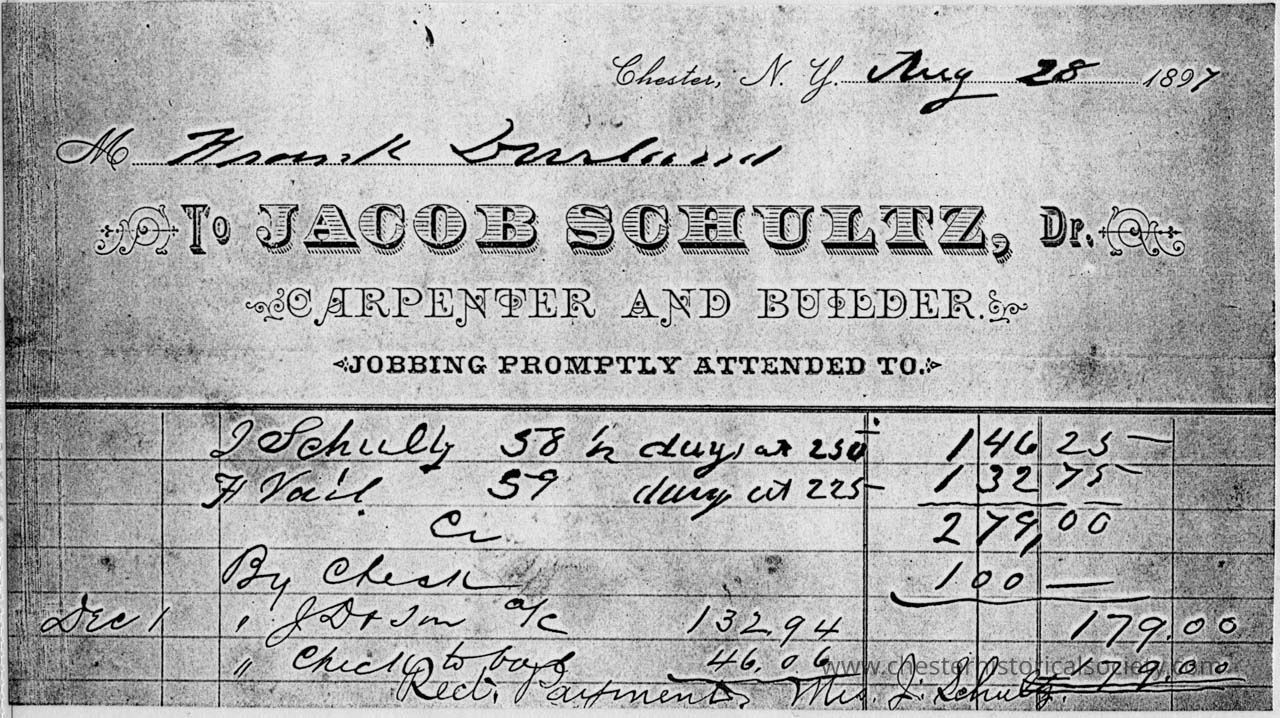 Chester, N. Y. Aug 28 1897
M Frank Durland
To JACOB SCHULTZ, Dr.
CARPENTER AND BUILDER.
JOBBING PROMPTLY ATTENDED TO.
J Schultz 58 1/2 days at 250 146 25
F Vail 59 days at 225 132 75
279,00
Cr
By Check 100 —
Dec 1 " J D & Son a/c 132.94 179.00
" Check to bal 46.06 179.00
www.chesterhistoricalsociety.com
Rect. Payment Mrs. J. Schultz